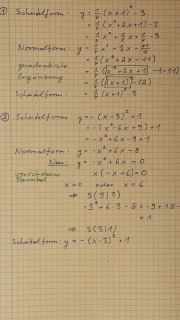 ① Scheitelform: y = 1/4 (x+1)² - 3
= 1/4 (x²+2x+1) - 3
= 1/4 x² + 1/2 x + 1/4 - 3
Normalform: y = 1/4 x² + 1/2 x - 11/4
= 1/4 (x² + 2x - 11)
quadratische
Ergänzung
= 1/4 (x²+2x+1 -1 -11)
= 1/4 ((x+1)² - 12)
Scheitelform: = 1/4 (x+1)² - 3
② Scheitelform y = -(x-3)² + 1
= -(x²-6x+9) + 1
= -x² + 6x - 9 + 1
Normalform: y = -x² + 6x - 8
Neu: y = -x² + 6x = 0
verschobene
Parabel
x(-x+6) = 0
x = 0 oder x = 6
⇒ S(3|?)
-3² + 6·3 - 8 = -9 + 18 -
= 1
⇒ S(3|1)
Scheitelform: y = -(x-3)² + 1